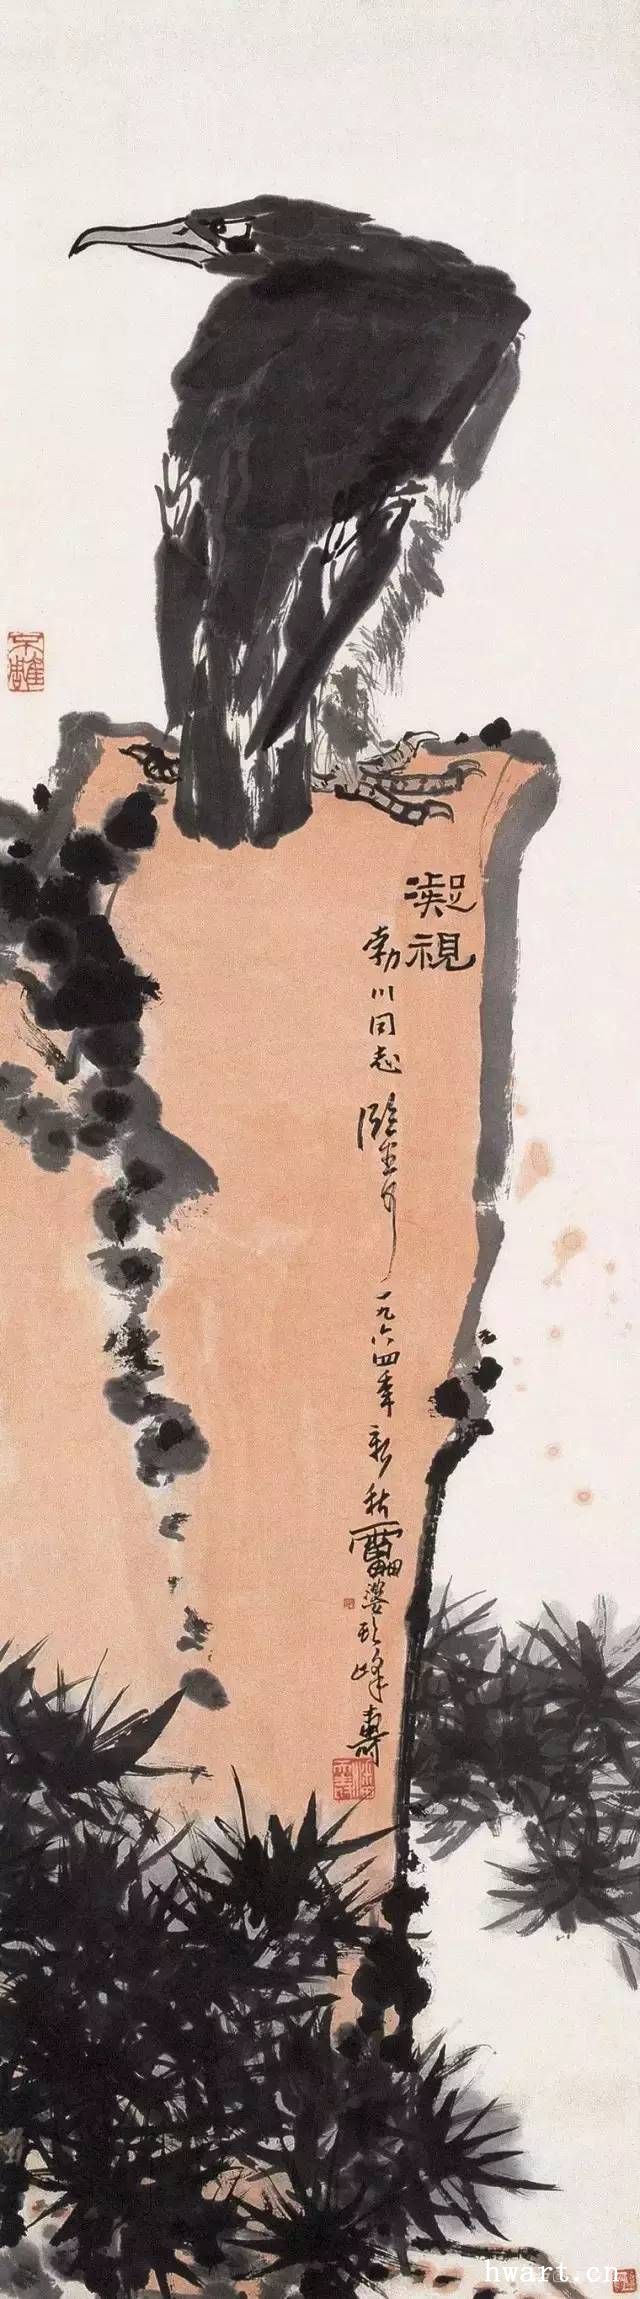 凝視
勃川同志
一九六四年新秋雷婆頭峰壽
不雕
hwart.cn